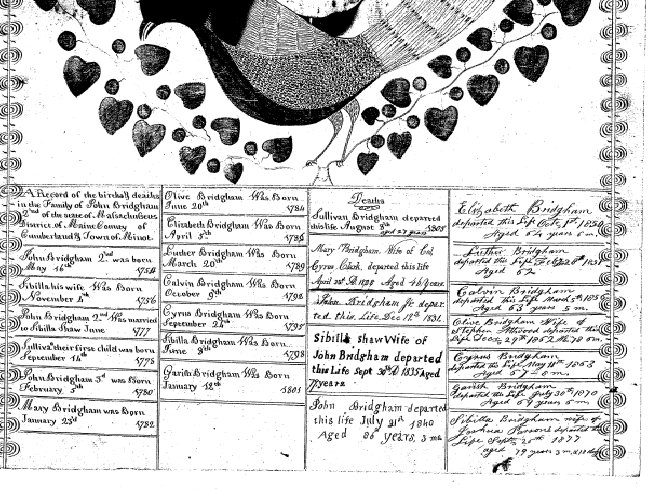 A Record of the births & deaths
in the Family of John Bridgham
2nd of the state of Massachusetts
District of Maine County of
Cumberland & Town of Minot.
John Bridgham 2nd was born
May 16th 1754
Sibilla his wife Was Born
November 4th 1756
John Bridgham 2nd Was married
to Sibilla Shaw June 1777
Sullivan their first child was born
September 14th 1778
John Bridgham 3d was Born
February 5th 1780
Mary Bridgham was Born
January 23d 1782
Olive Bridgham Was Born
June 20th 1784
Elizabeth Bridgham Was Born
April 3d 1786
Luther Bridgham Was Born
March 20th 1789
Calvin Bridgham Was Born
October 8th 1792
Cyrus Bridgham Was Born
September 24th 1795
Sibilla Bridgham Was Born
June 8th 1798
Garish Bridgham Was Born
January 18th 1801
Deaths
Sullivan Bridgham departed
this life August 8th 1808
aged 29 years
Mary Bridgham, Wife of
Cyrus Clark, departed this life
April 28th 1828 Aged 46 years.
John Bridgham Jr depar-
ted this Life Dec 19th 1831.
Sibilla Shaw Wife of
John Bridgham departed
this Life Sept 30th 1835 Aged
77 years
John Bridgham departed
this life July 21st 1840
Aged 86 Years, 3 ms
Elizabeth Bridgham
departed this Life Oct. 1st 1850
Aged 64 years 6 m.
Luther Bridgham
departed this Life
Aged 62
Calvin Bridgham
departed this Life March 5th 1856
Aged 63 years 5 m.
Olive Bridgham Wife of
Stephen Attwood departed this
Life Dec 29th 1862 78 6 m.
Cyprus Bridgham
departed this Life May 18th 1863
Aged 67 8 m.
Garish Bridgham
departed this Life July 30th 1870
Aged 69 years 6 m.
Sibilla Bridgham wife of
Joshua Parsons departed this
Life Sept 26th 1877
aged 79 years 3 m & 18 days